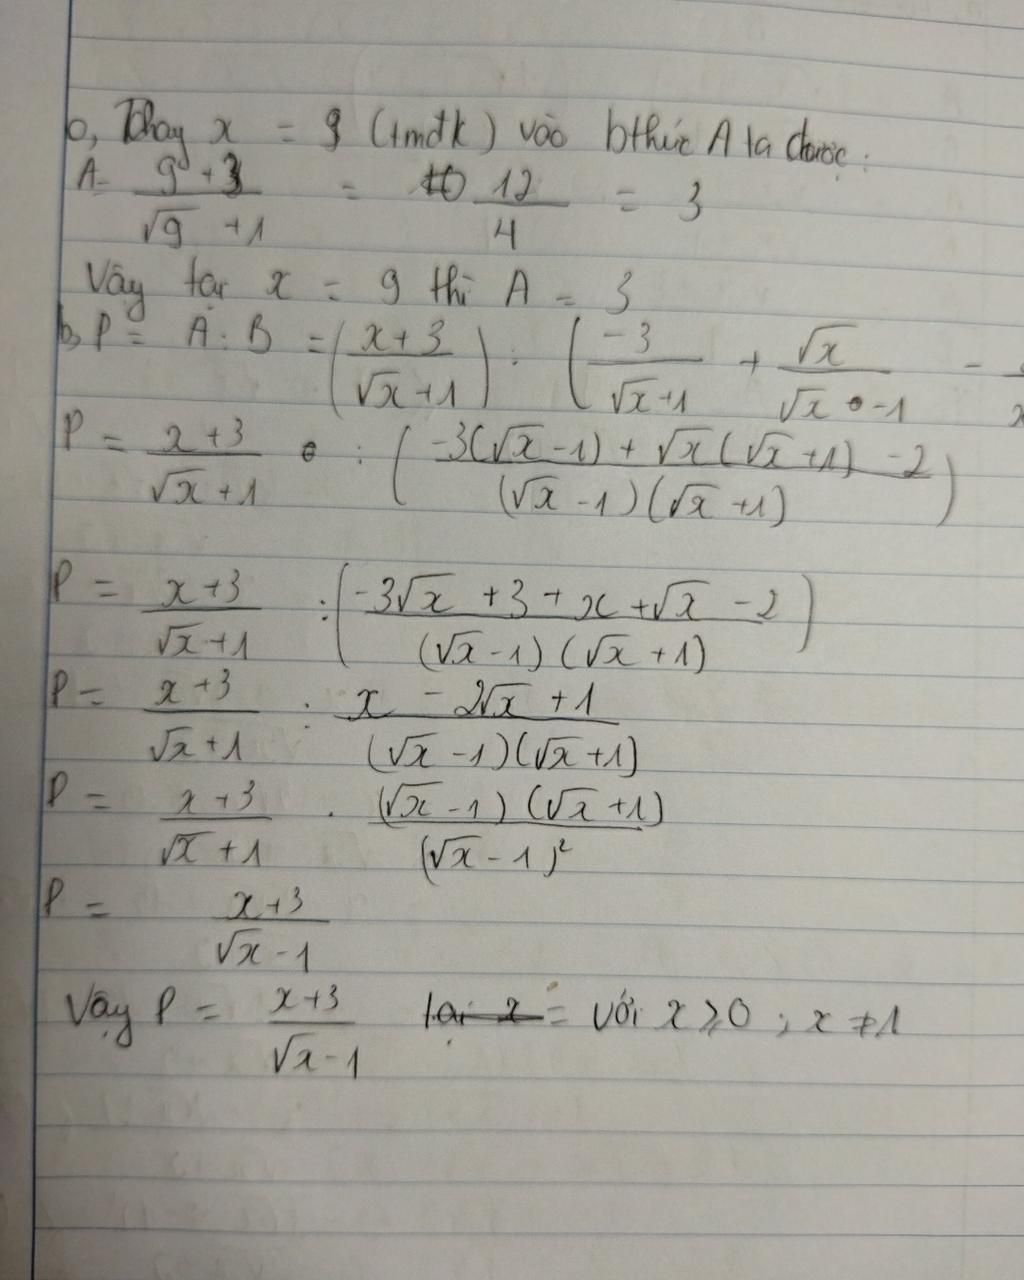 b, Thay x = 9 (tmđk) vào bthức A ta được:
A = (9+3)/(√9 +1) = 12/4 = 3
Vậy tại x = 9 thì A = 3
b, P = A : B = ((x+3)/(√x+1)) : (-3/(√x+1) + √x/(√x -1) -
P = (x+3)/(√x+1) : ((-3(√x-1) + √x(√x+1) -2)/((√x-1)(√x+1)))
P = (x+3)/(√x+1) : ((-3√x +3 + x +√x -2)/((√x-1)(√x+1)))
P = (x+3)/(√x+1) : (x - 2√x +1)/((√x-1)(√x+1))
P = (x+3)/(√x+1) . ((√x-1)(√x+1))/(√x-1)²
P = (x+3)/(√x-1)
Vậy P = (x+3)/(√x-1) tại x = với x ⩾ 0 ; x ≠ 1